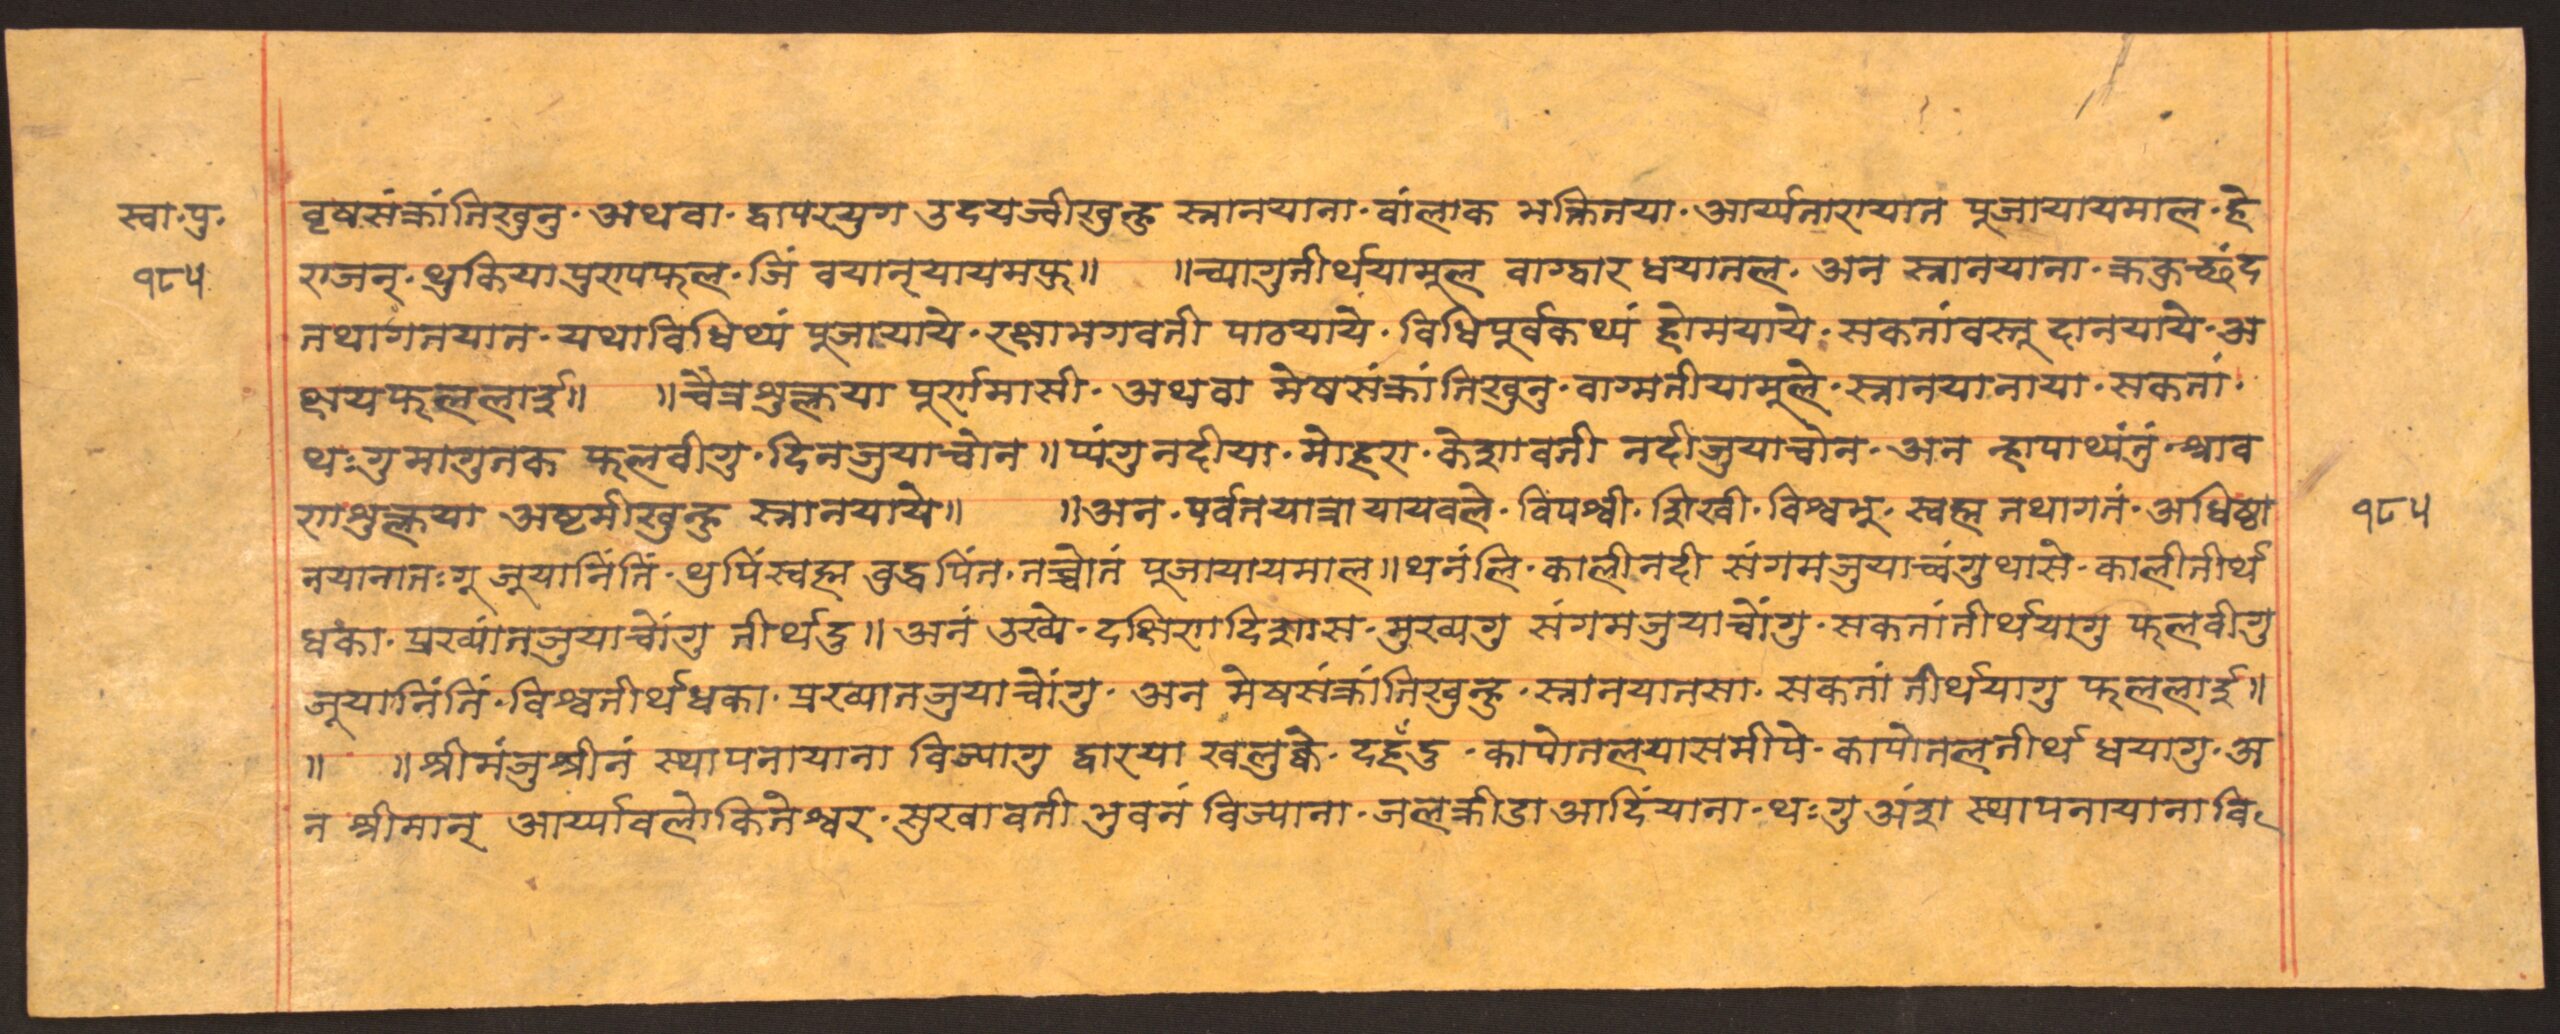 स्वा·पु·
१८५
वृषसंक्रांतिखुनु· अथवा· द्वापरयुग उदयज्वीखुन्हु स्नानयाना· वांलाक भक्तितया· आर्य्यतारायात पूजायायमाल· हे
राजन्· थुकिया पुण्यफल· जिं वयान्यायमफु॥ ॥च्यागुतीर्थयामूल वाग्द्वार धयातल· अन स्नानयाना· क्रकुच्छंद
तथागतयात· यथाविधिथ्यं पूजायाये· रक्षाभगवती पाठयाये· विधिपूर्वकथ्यं होमयाये· सकतांवस्तू दानयाये· अ
क्षयफललाई॥ ॥चैत्रशुक्लया पूर्णमासी· अथवा मेषसंक्रांतिखुनु· वाग्मतीयामूले· स्नानयानाया· सकतां·
थःगुमागुतक फलवीगु· दिनजुयाच्वोन॥ प्यंगुनदीया· मोहरा· केशावती नदीजुयाच्वोन· अन न्हापाथ्यंतुं· श्राव
णशुक्लया अष्टमीखुन्हु स्नानयाये॥ ॥अन· पर्वतयात्रायायवले· विपश्वी· शिखी· विश्वभू· स्वह्म तथागतं· अधिष्ठा
नयानातःगू जूयानिंतिं· थुपिंस्वह्म बुद्धपिंत· तच्वोतं पूजायायमाल॥ थनंलि· कालीनदी संगमजुयाच्वंगुथासे· कालीतीर्थ
धका· प्रख्यांत्जुयाच्वोंगु तीर्थदु॥ अनं उख्ये· दक्षिणदिशास· मुख्यगु संगमजुयाच्वोंगु· सकतांतीर्थयागु फलवीगु
जूयानिंतिं· विश्वतीर्थधका· प्रख्यातजुयाच्वोंगु· अन मेषसंक्रांतिखुन्हु· स्नानयातसा· सकतां तीर्थयागु फललाई॥
॥ ॥श्रीमंजुश्रीनं स्थापनायाना विज्यागु द्वारया खलुक्वे· दहँदु· कापोतलयासमीपे· कापोतलतीर्थ धयागु· अ
न श्रीमान् आर्य्यावलोकितेश्वर· सुखावती भुवनं विज्याना· जलक्रीडाआदिंयाना· थःगु अंश स्थापनायाना वि
१८५